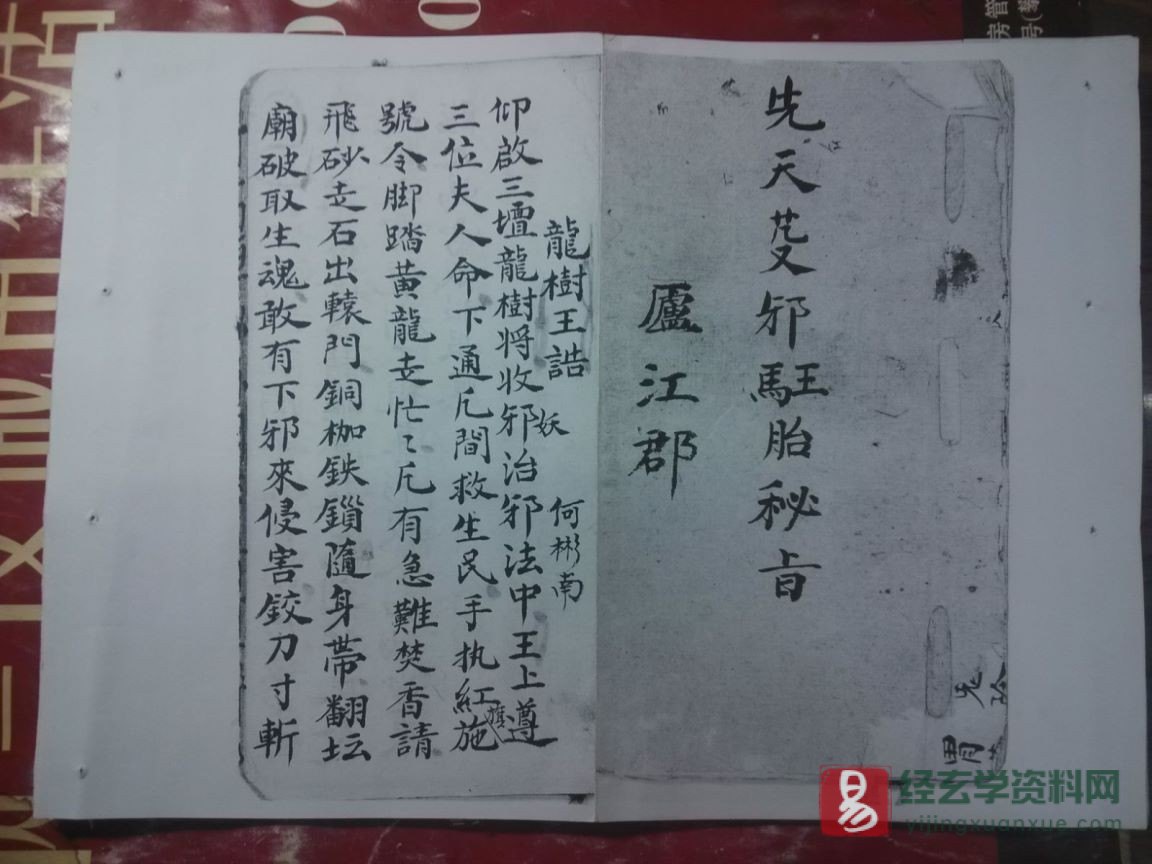 先天芟邪駐胎秘旨
廬江郡
龍樹王誥 何彬南
仰啟三壇龍樹將收邪妖治邪法中王上遵
三位夫人命下通凡間救生民手执紅旗施
號令脚踏黃龍走忙〻凡有急難焚香請
飛砂走石出轅門銅枷鉄鎻隨身帶翻坛
廟破取生魂敢有下邪來侵害鉸刀寸斬
经玄学资料网
yijingxuanxue.com
易